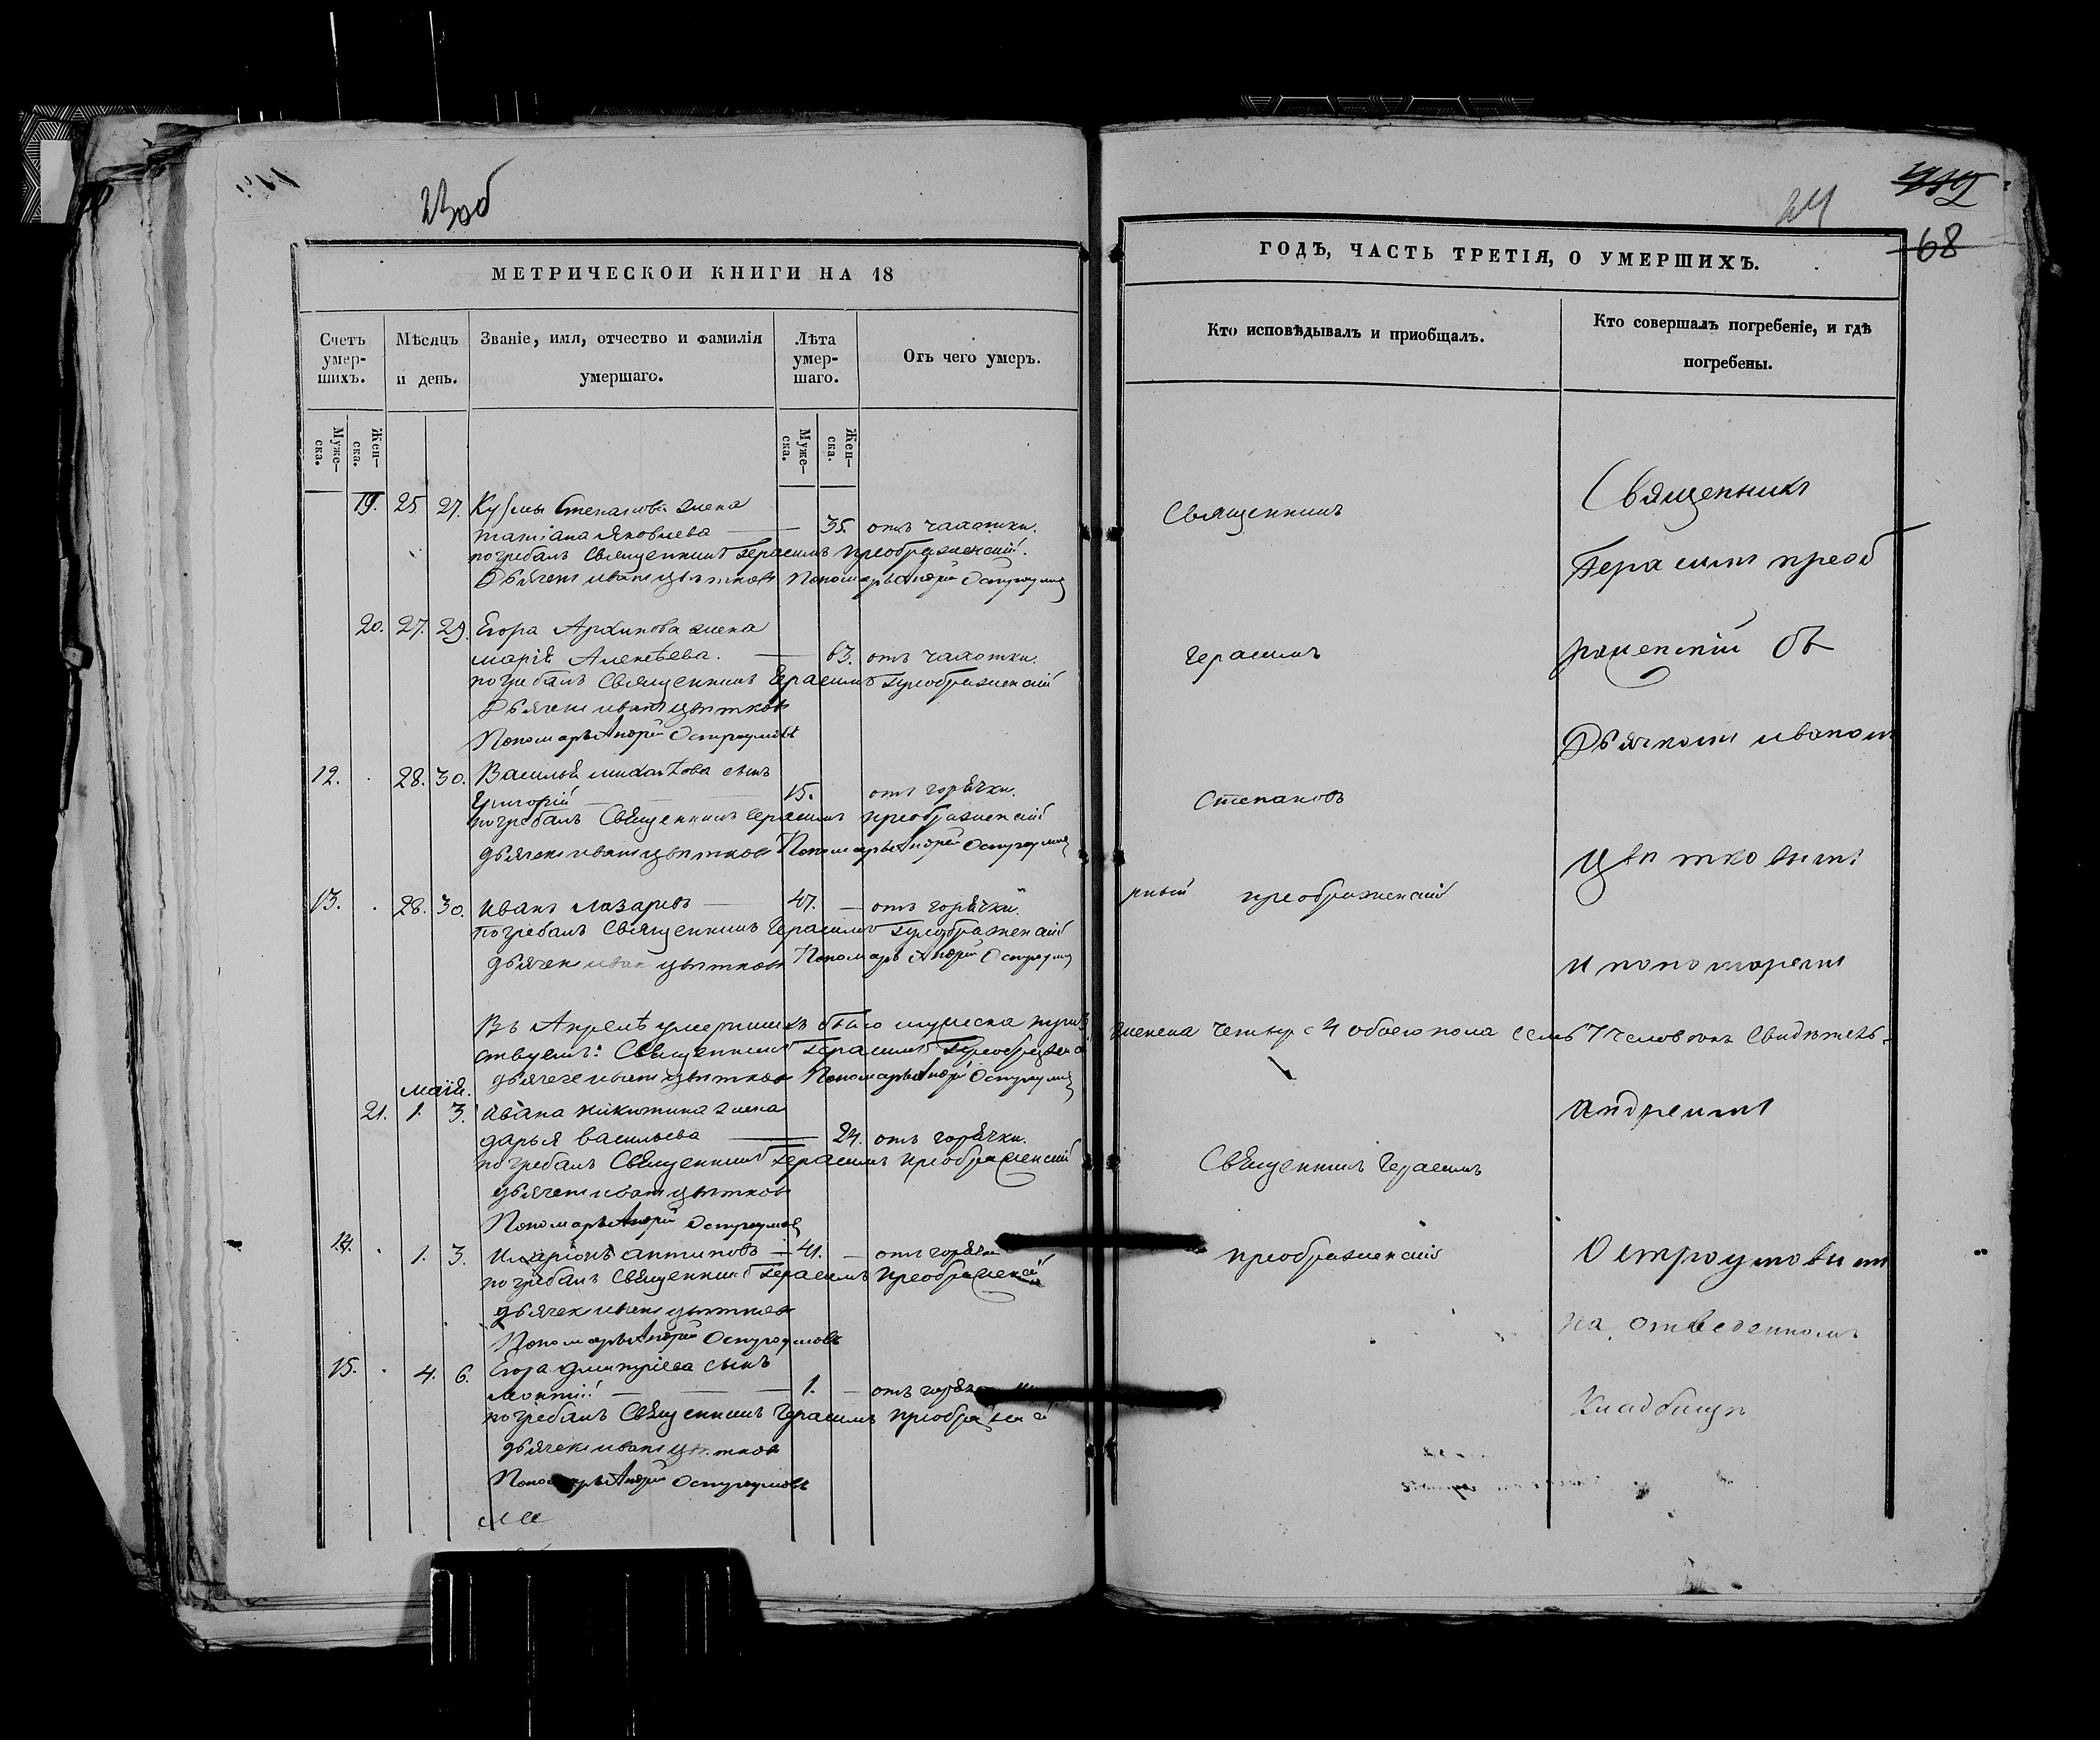 23об
МЕТРИЧЕСКОЙ КНИГИ НА 18
Счетъ умер-шихъ.
Мѣсяцъ и день.
Званіе, имя, отчество и фамилія умершаго.
Лѣта умер-шаго.
Отъ чего умеръ.
Муже-ска.
Жен-ска.
Муже-ска.
Жен-ска.
19. 25. 27. Кузмы Степанова жена
татіана Яковлева 35. отъ чахотки.
погребалъ Священникъ Герасимъ преображенскій.
Дьячекъ иванъ цвѣтковъ Пономарь Андрей Остроумов
20. 27. 29. Егора Архипова жена
марія Алексѣева. 63. отъ чахотки.
погребалъ Священникъ Герасимъ преображенскій
Дьячекъ иванъ цвѣтковъ
Пономарь Андрей Остроумовъ
12. 28. 30. Василья михайлова сынъ
Григорій 15. отъ горячки.
погребалъ Священникъ Герасимъ преображенскій
дьячекъ иванъ цвѣтковъ Пономарь Андрей Остроумов
13. 28. 30. иванъ лазаревъ 47. отъ горячки.
погребалъ Священникъ Герасимъ преображенскій
дьячекъ иван цвѣтковъ Пономарь Андрей Остроумов
Въ Апрелѣ умершихъ было мужеска
ствуемъ: Священникъ Герасимъ Преображенск
дьячекъ иванъ цвѣтков Пономарь Андрей Остроумов
маія.
21. 1. 3. ивана никитина жена
дарья васильева 24. отъ горячки.
погребалъ Священникъ Герасимъ преображенскій
дьячекъ иванъ цвѣтковъ
Пономарь Андрей Остроумов
14. 1. 3. иларіонъ антиповъ 41. отъ горячки
погребалъ Священникъ Герасимъ преображенскій
дьячекъ иванъ цвѣтков
Пономарь Андрей Остроумовъ
15. 4. 6. Егора дмитріева сынъ
леонтій 1. отъ
погребалъ Священникъ Герасимъ преображенскій
дьячекъ иванъ цвѣтков
Пономарь Андрей Остроумовъ
24
68
ГОДЪ, ЧАСТЬ ТРЕТІЯ, О УМЕРШИХЪ.
Кто исповѣдывалъ и приобщалъ.
Кто совершалъ погребеніе, и гдѣ погребены.
Священникъ
Герасимъ
Степановъ
преображенскій
женска четыр 4 обоего пола семь 7 человѣкъ Свидѣтель-
Священникъ Герасимъ
преображенскій
Священникъ
Герасимъ преоб
раженскій съ
Дьячкомъ иваномъ
Цвѣтковымъ
и пономаремъ
андреемъ
Остроумовымъ
на отведенномъ
Кладбищѣ